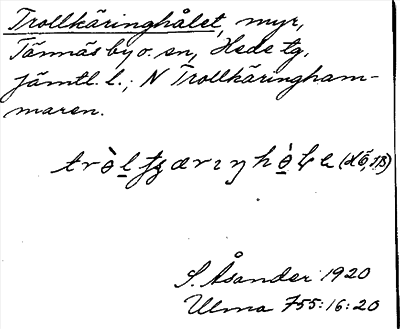 Trollkäringhålet, myr,
Tännäs by o. sn, Hede tg,
Jämtl. l.; N Trollkäringham-
maren.
(dö, JB)
S. Åsander 1920
Ulma 755:16:20